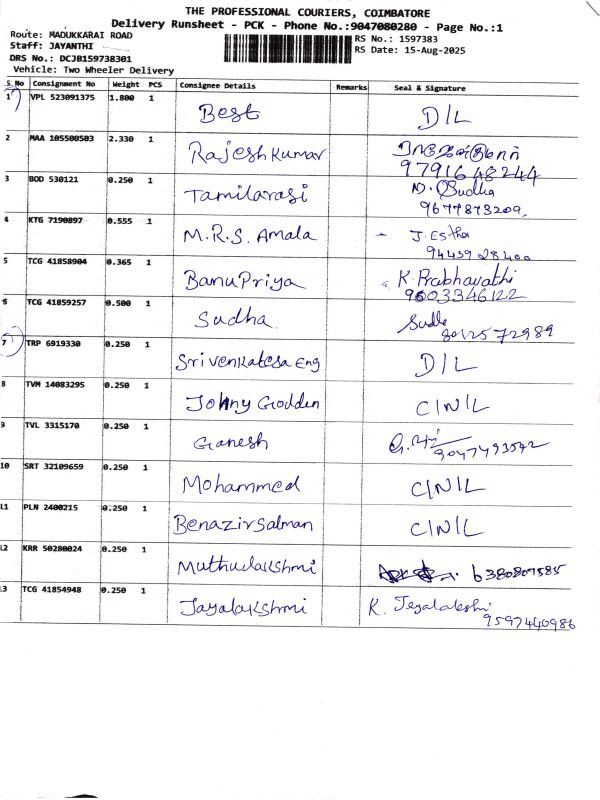 THE PROFESSIONAL COURIERS, COIMBATORE
Delivery Runsheet - PCK - Phone No.:9047080280 - Page No.:1
Route: MADUKKARAI ROAD
RS No.: 1597383
Staff: JAYANTHI
RS Date: 15-Aug-2025
DRS No.: DCJB159738301
Vehicle: Two Wheeler Delivery
S No Consignment No Weight PCS Consignee Details Remarks Seal & Signature
1 VPL 523091375 1.800 1 Best D/L
2 MAA 105500503 2.330 1 Rajesh Kumar 9791648244
3 BOD 530121 0.250 1 Tamilarasi N. Sudha
9677873209
4 KTG 7190897 0.555 1 M.R.S. Amala J. Esther
5 TCG 41858904 0.365 1 BanuPriya K. Prabhavathi
9003346122
6 TCG 41859257 0.500 1 Sudha
7 TRP 6919330 0.250 1 Srivenkatesa Eng D/L
8 TVM 14083295 0.250 1 Johny Godden C/N/L
9 TVL 3315170 0.250 1 Ganesh
10 SRT 32109659 0.250 1 Mohammed C/N/L
11 PLN 2400215 0.250 1 Benazir Salman C/N/L
12 KRR 50280024 0.250 1 Muthulakshmi 6380807585
13 TCG 41854948 0.250 1 Jayalakshmi K. Jeyalakshi
9597440986